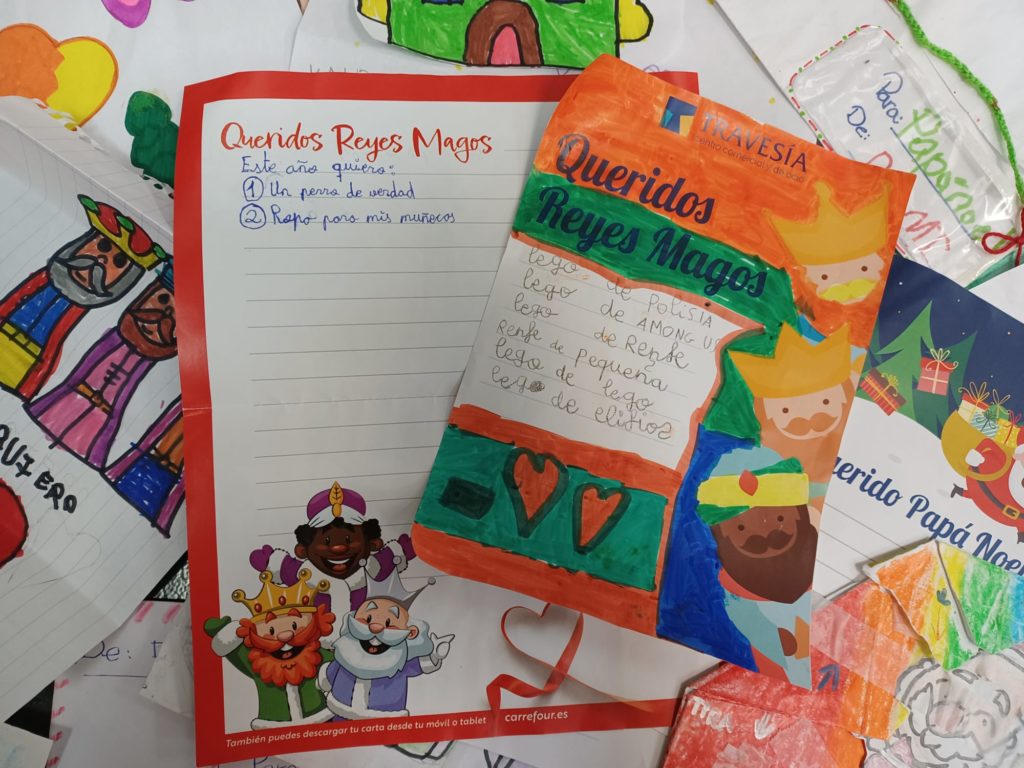 Queridos Reyes Magos
Este año quiero:
1 Un perro de verdad
2 Ropa para mis muñecos
También puedes descargar tu carta desde tu móvil o tablet
carrefour.es
TRAVESÍA
centro comercial y de ocio
Queridos
Reyes Magos
lego de POLISIA
lego de AMONG US
lego de Renfe
Renfe de pequeña
lego de lego
lego de elifios
Para: Papá Noel
De:
Querido Papá Noel
QUIERO
De:
Para
TIRA